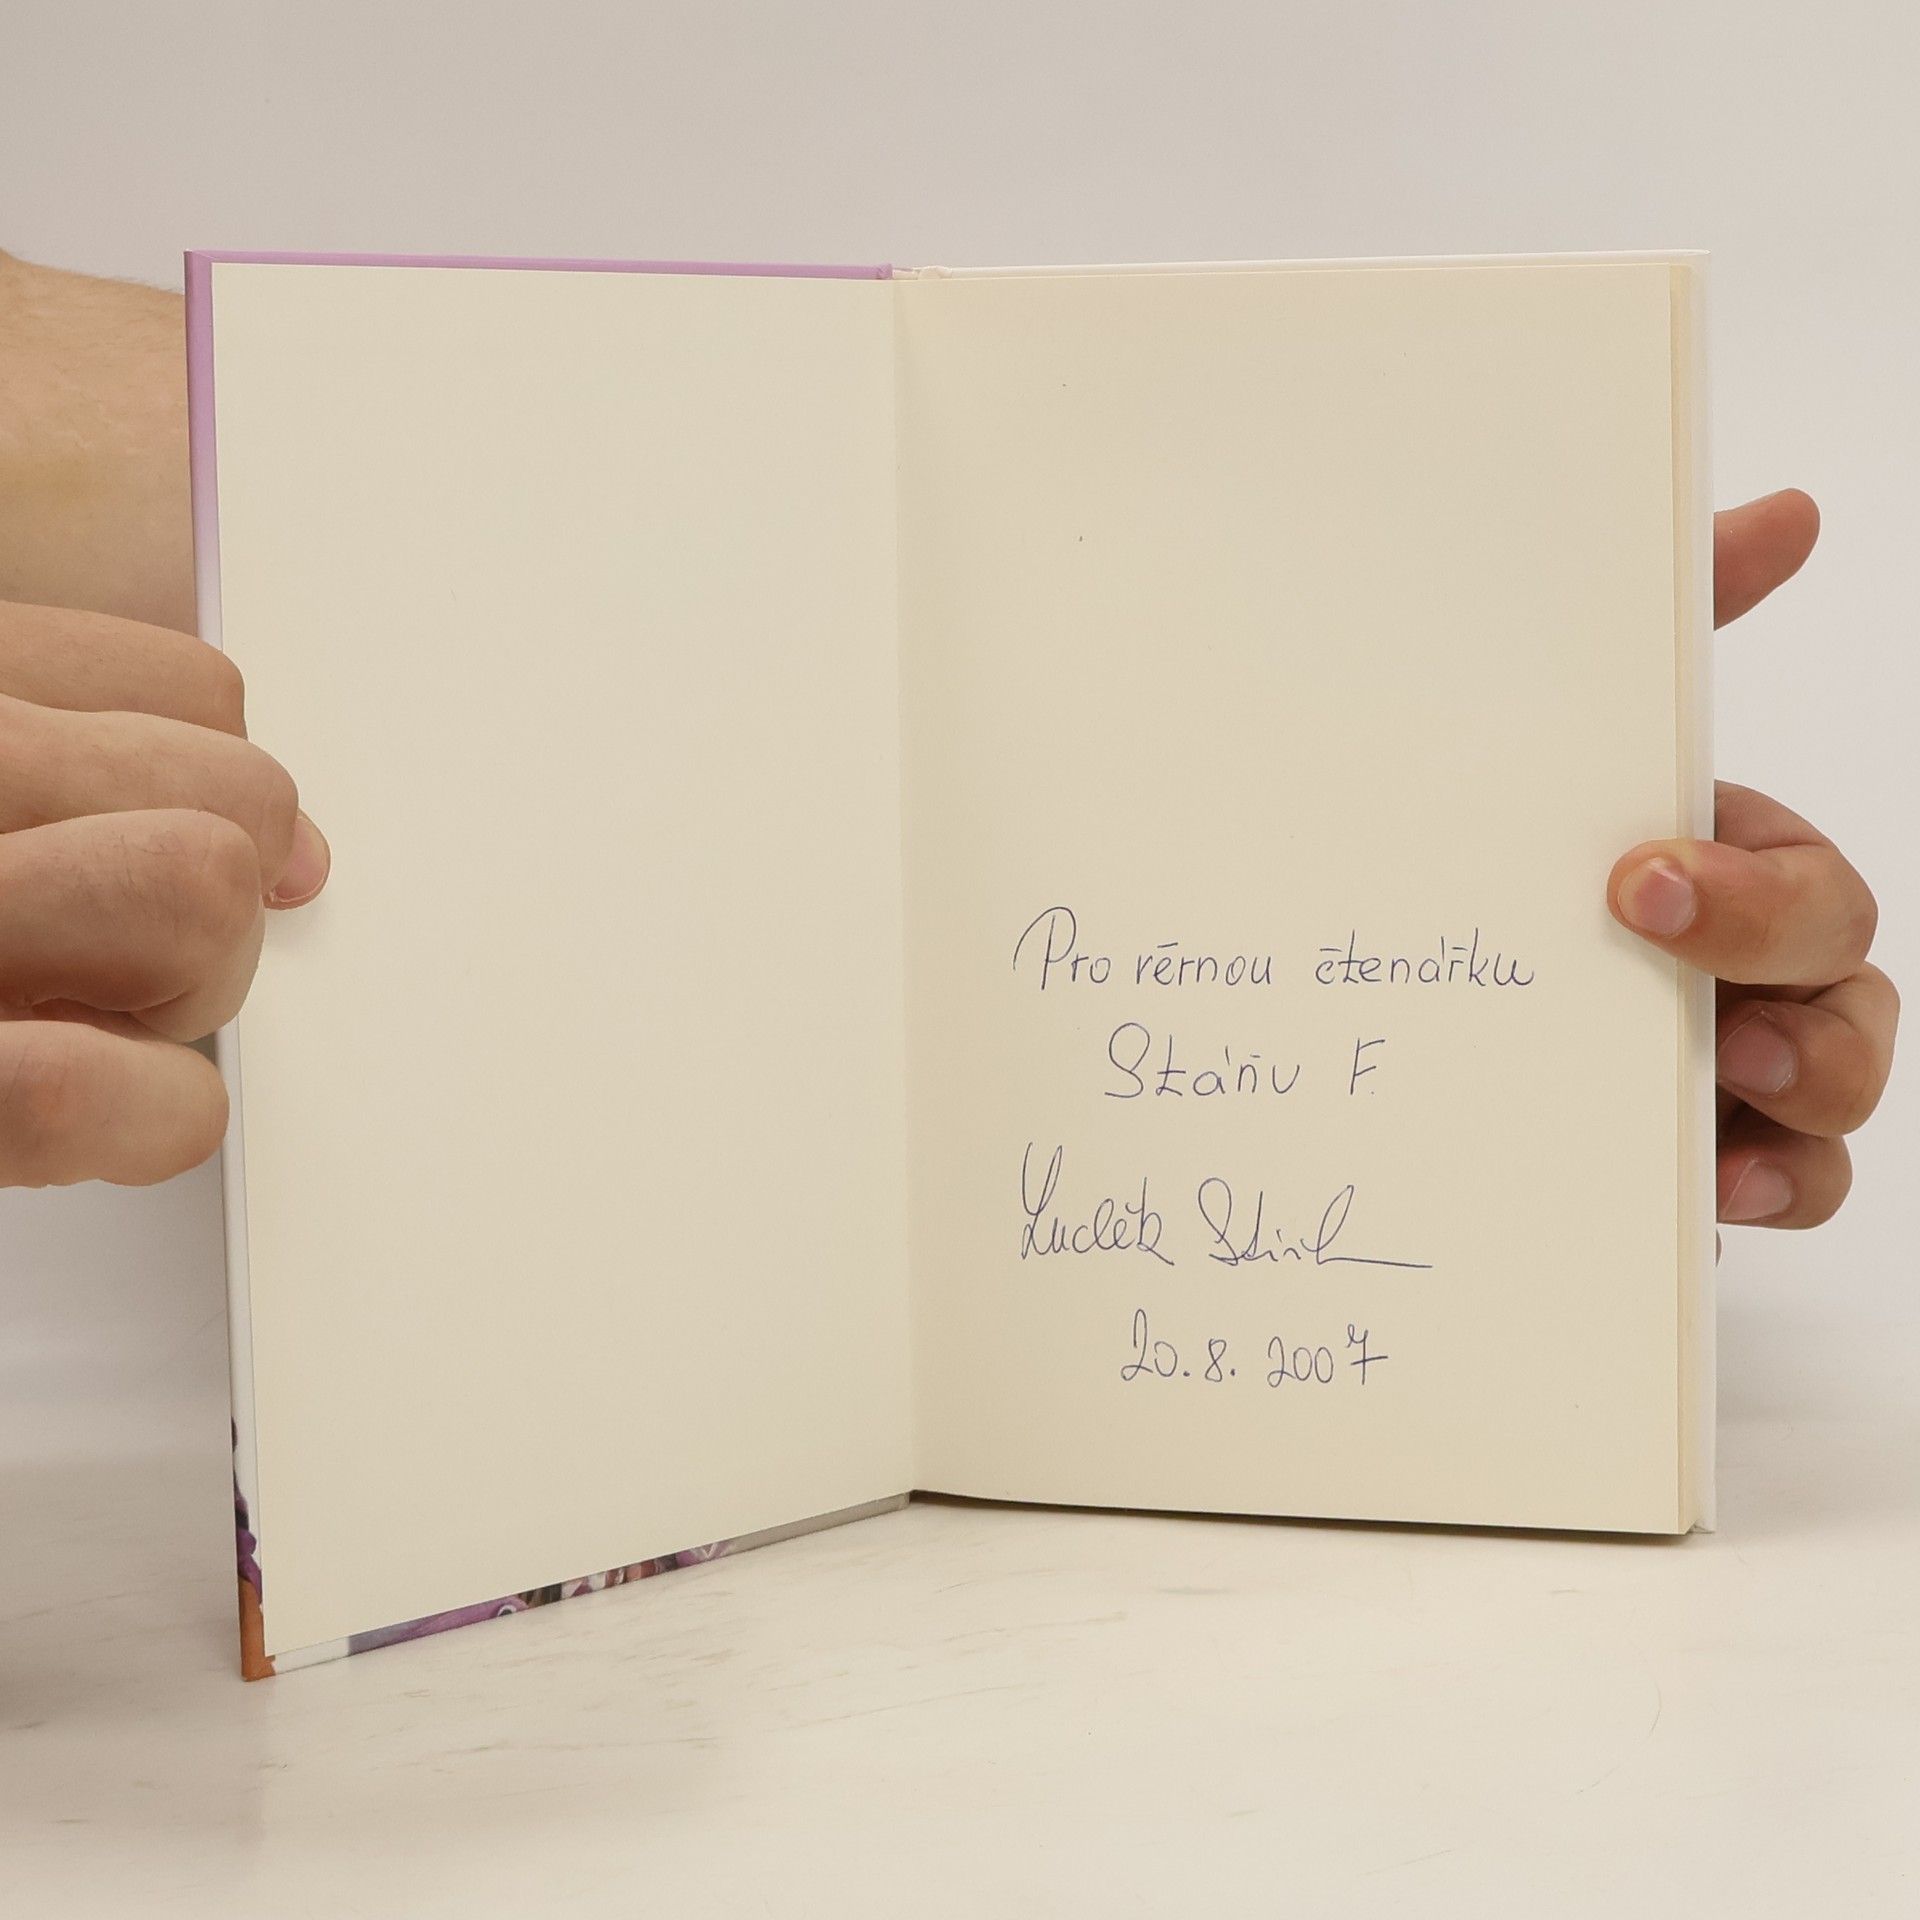 Pro věrnou čtenářku
Stáňu F.
Luděk
20. 8. 2007